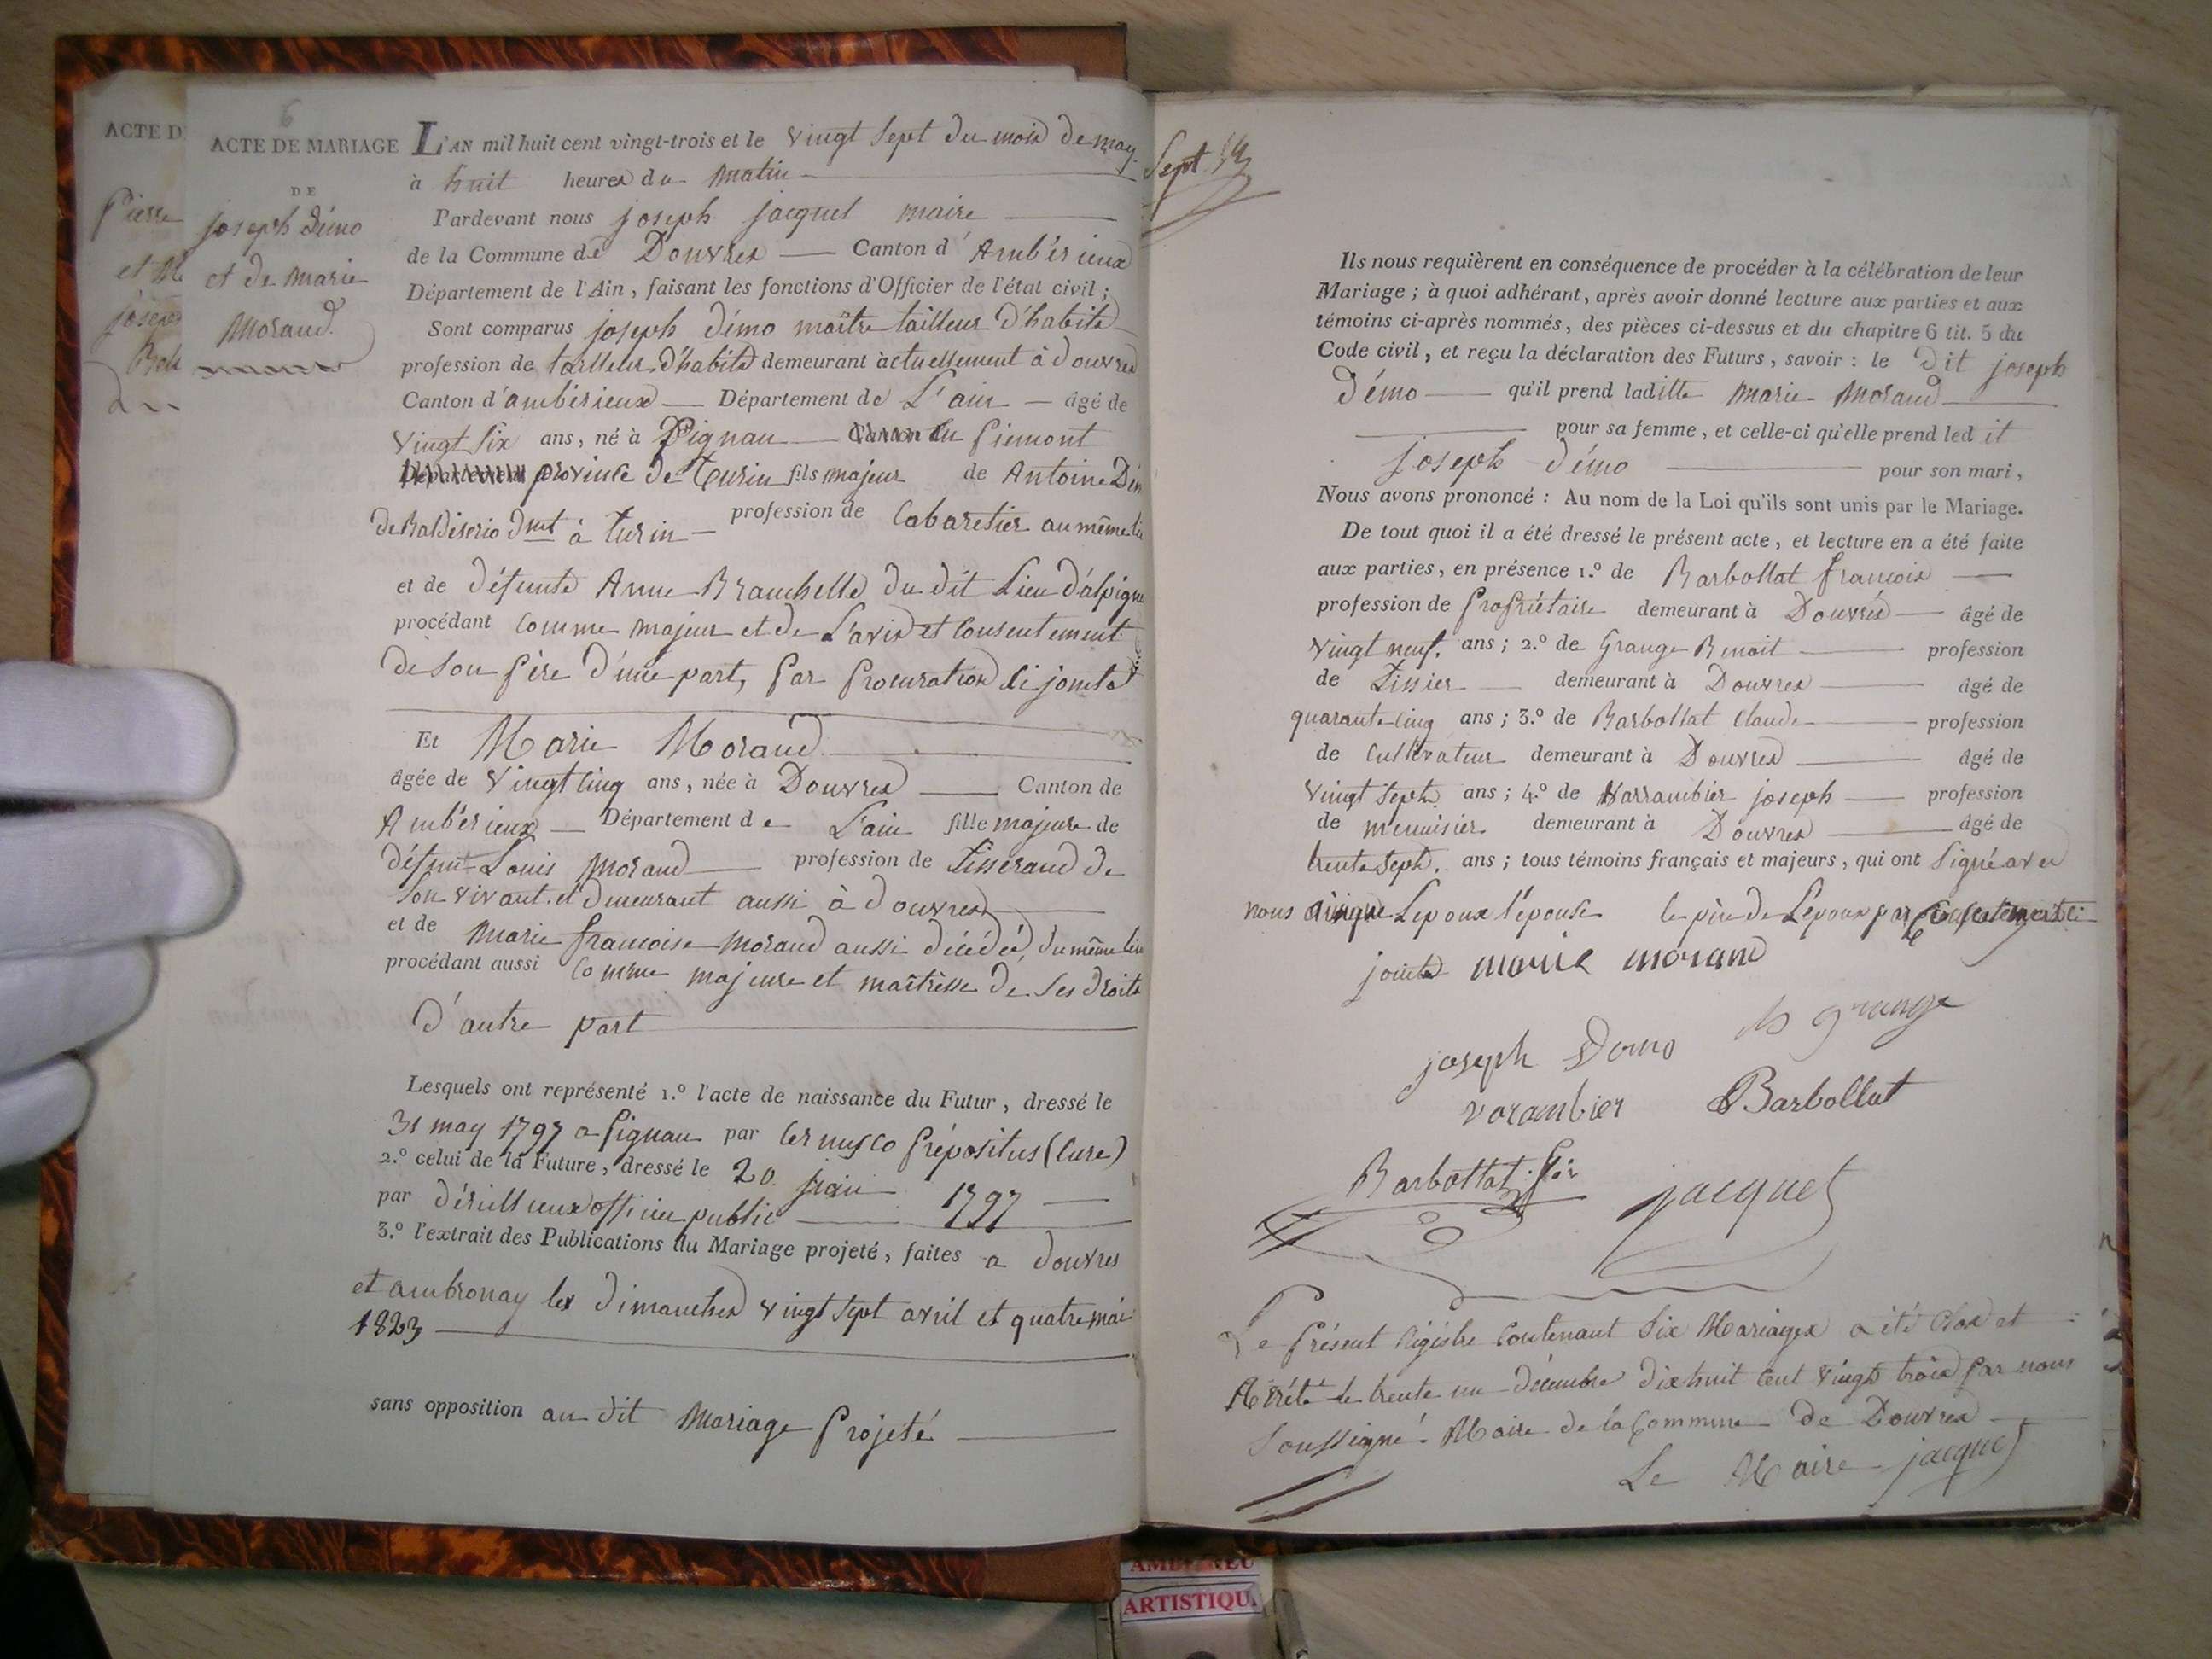 6
ACTE D
Pierre
et M
joseph
ACTE DE MARIAGE
DE
joseph Démo
et de marie
Morand.
L'AN mil huit cent vingt-trois et le vingt sept du mois de may
à huit heures du matin
Pardevant nous joseph jacquet maire
de la Commune de Douvres Canton d'Ambérieux
Département de l'Ain, faisant les fonctions d'Officier de l'état civil ;
Sont comparus joseph démo maître tailleur d'habits
profession de tailleur d'habits demeurant actuellement à douvres
Canton d'ambérieux Département de L'ain âgé de
vingt six ans, né à Pignau Canton en piemont
Département province de Turin fils majeur de Antoine Dém
de Baldiserio dmt à turin profession de Cabaretier au même lieu
et de défunte Anne Brambella du dit Lieu d'alpign
procédant comme majeur et de L'avis et consentement
de son père d'une part, par procuration ci jointe
Et Marie Morand
âgée de vingt cinq ans, née à Douvres Canton de
Ambérieux Département de L'ain fille majeure de
défunt Louis morand profession de Tisserand de
son vivant et demeurant aussi à douvres
et de marie françoise morand aussi décédée, du même lieu
procédant aussi comme majeure et maîtresse de ses droits
d'autre part
Lesquels ont représenté 1.º l'acte de naissance du Futur, dressé le
31 may 1797 a pignau par Cernusco prépositus (Cure)
2.º celui de la Future, dressé le 20 juin 1797
par officier public
3.º l'extrait des Publications du Mariage projeté, faites a douvres
et ambronay les dimanches vingt sept avril et quatre mai
1823
sans opposition au dit mariage projeté
Sept
Ils nous requièrent en conséquence de procéder à la célébration de leur
Mariage ; à quoi adhérant, après avoir donné lecture aux parties et aux
témoins ci-après nommés, des pièces ci-dessus et du chapitre 6 tit. 5 du
Code civil, et reçu la déclaration des Futurs, savoir : le dit joseph
démo qu'il prend laditte marie morand
pour sa femme, et celle-ci qu'elle prend ledit
joseph démo pour son mari,
Nous avons prononcé : Au nom de la Loi qu'ils sont unis par le Mariage.
De tout quoi il a été dressé le présent acte, et lecture en a été faite
aux parties, en présence 1.º de Barbollat françois
profession de propriétaire demeurant à Douvres âgé de
vingt neuf. ans ; 2.º de Grange Benoit profession
de Tissier demeurant à Douvres âgé de
quarante cinq ans ; 3.º de Barbollat Claude profession
de cultivateur demeurant à Douvres âgé de
vingt sept. ans ; 4.º de Varrambier joseph profession
de menuisier demeurant à Douvres âgé de
trente sept. ans ; tous témoins français et majeurs, qui ont signé avec
nous ainsi que L'epoux l'épouse le père de L'époux par consentement ci
jointe marie morand
joseph Domo b grange
varambier Barbollat
Barbottat fçois jacquet
Le présent Régistre contenant six Mariages a été clos et
Arrêté le trente un décembre dix huit cent vingt trois par nous
soussigné Maire de la Commune de Douvres
Le Maire jacquet
ARTISTIQU